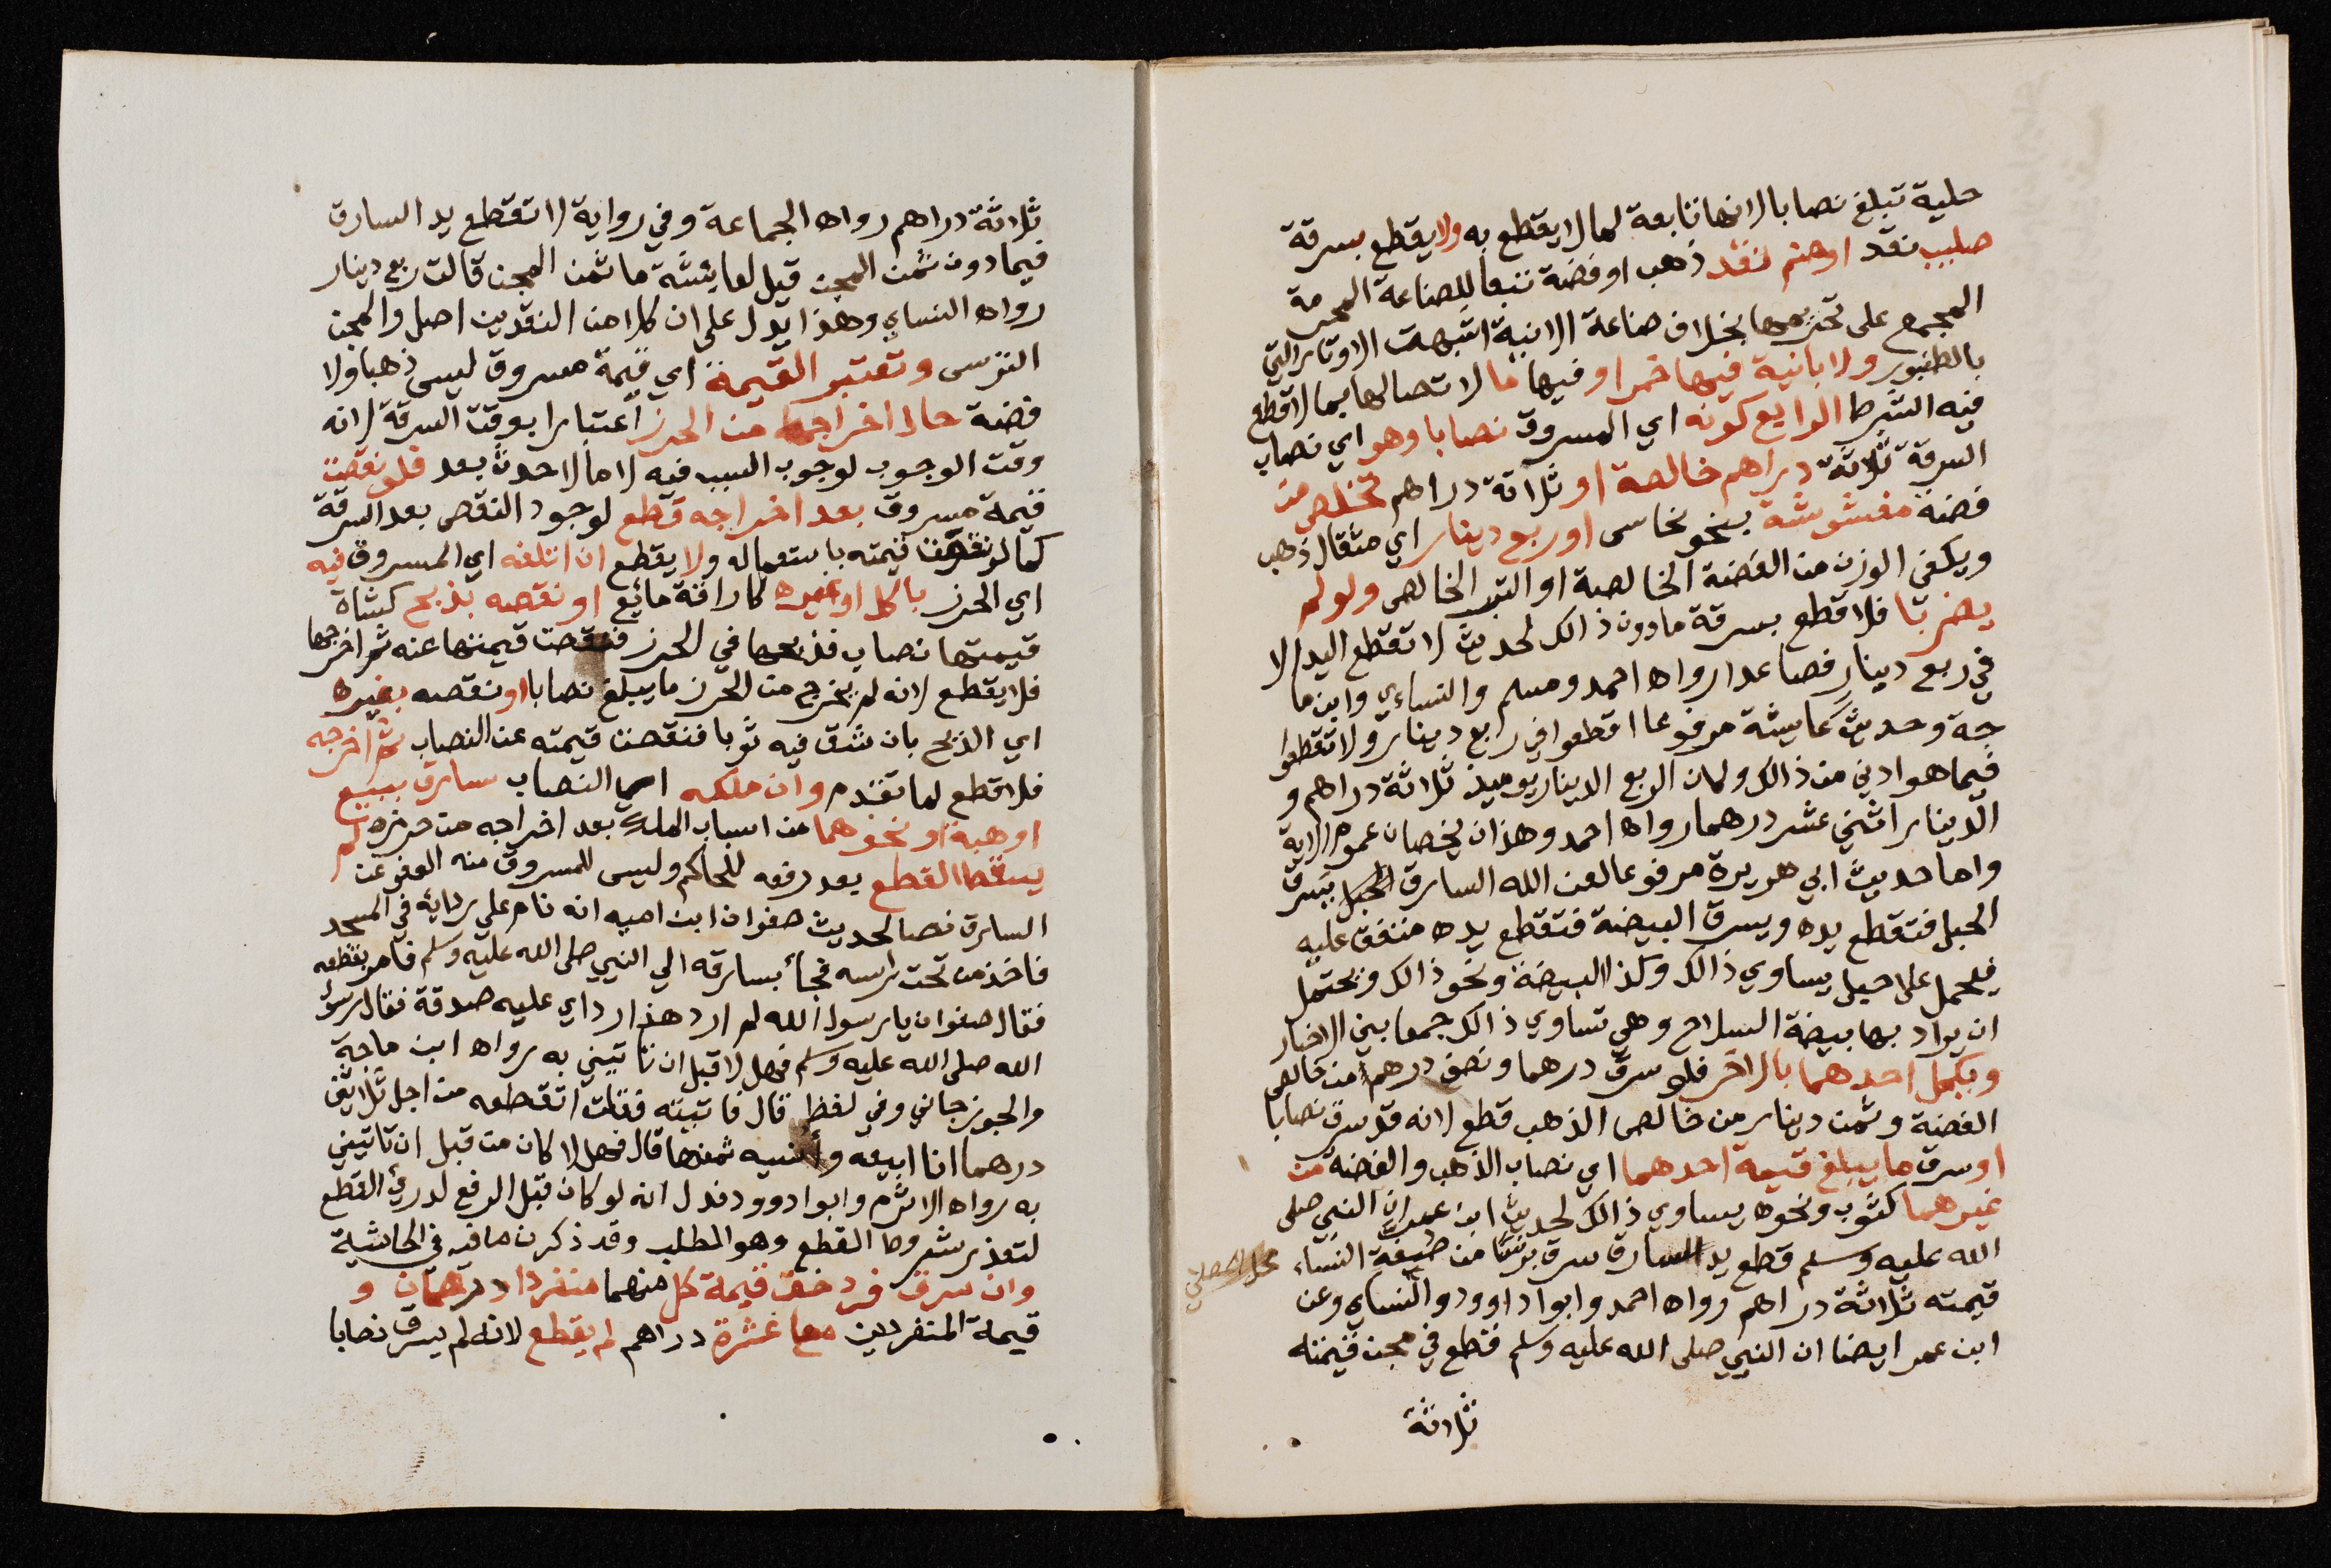 حلية تبلغ نصابا لانها تابعة لما لا يقطع به ولا يقطع بسرقة
صليب نقد او صنم نقد ذهب او فضة تبعا للصناعة المحرمة
المجمع على تحريمها بخلاف صناعة الانية اشبهت الاوتار التي
بالطنبور ولا بانية فيها خمر او فيها ما لاتصالها بما لا قطع
فيه الشرط الرابع كونه اي المسروق نصابا وهو اي نصاب
السرقة ثلاثة دراهم خالصة او ثلاثة دراهم تخلص من
فضة مغشوشة بنحو نحاس او ربع دينار اي مثقال ذهب
ويكفي الوزن من الفضة الخالصة او التبر الخالص ولو لم
يضربا فلا قطع بسرقة ما دون ذالك لحديث لا تقطع اليد الا
في ربع دينار فصاعدا رواه احمد ومسلم والنساءي وابن ما
جة وحديث عايشة مرفوعا اقطعوا في رابع دينار ولا تقطعوا
فيما هو ادنى من ذالك وكان الربع الدينار يوميذ ثلاثة دراهم و
الدينار اثني عشر درهما رواه احمد وهذان يخصان عموم الاية
واما حديث ابي هريرة مرفوعا لعن الله السارق الحبل يسرق
الحبل فتقطع يده ويسرق البيضة فتقطع يده متفق عليه
فيحمل على حبل يساوي ذالك وكذا البيضة ونحو ذالك ويحتمل
ان يراد بها بيضة السلاح وهي تساوي ذالك جمعا بين الاخبار
ويكمل احدهما بالاخر فلو سرق درهما ونصف درهم من خالص
الفضة وثمن دينار من خالص الذهب قطع لانه قد سرق نصابا
او سرق ما يبلغ قيمة احدهما اي نصاب الذهب والفضة من
غيرهما كثوب ونحوه يساوي ذالك لحديث ابن عمر ان النبي صلى
الله عليه وسلم قطع يد السارق سرق برنسا من صفة النساء
قيمته ثلاثة دراهم رواه احمد وابوا داوود والنساي وعن
ابن عمر ايضا ان النبي صلى الله عليه وسلم قطع في مجن قيمته
ثلاثة
ثلاثة دراهم رواه الجماعة وفي رواية لا تقطع يد السارق
فيما دون ثمن المجن قيل لعايشة ما ثمن المجن قالت ربع دينار
رواه النساي وهذا يدل على ان كلا من النقدين اصل والمجن
الترس وتعتبر القيمة اي قيمة مسروق ليس ذهبا ولا
فضة حال اخراجه من الحرز اعتبارا بوقت السرقة لانه
وقت الوجوب لوجوب السبب فيه لا ما لا حدث بعد فلو نقصت
قيمة مسروق بعد اخراجه قطع لوجود النقص بعد السرقة
كما لو نقصت قيمته باستعماله ولا يقطع ان اتلفه اي المسروق فيه
اي الحرز باكل او غيره كاراقة مائع او نقصه بذبح كشاة
قيمتها نصاب فذبحها في الحرز فنقصت قيمتها عنه ثم اخرجها
فلا يقطع لانه لم يخرج من الحرز ما يبلغ نصابا او نقصه بغيره
اي الذبح بان شق فيه ثوبا فنقصت قيمته عن النصاب ثم اخرجه
فلا قطع لما تقدم وان ملكه اي النصاب سارق ببيع
او هبة او نحوهما من اسباب الملك بعد اخراجه من حرزه لم
يسقط القطع بعد رفعه للحاكم وليس للمسروق منه العفو عن
السارق نصا لحديث صفوان ابن اميه انه نام على ردايه في المسجد
فاخذ من تحت راسه فجأ بسارقه الى النبي صلى الله عليه وسلم فامر بقطعه
فقال صفوان يا رسول الله لم ارد هذا رداي عليه صدقة فقال رسول
الله صلى الله عليه وسلم فهل لا قبل ان تاتيني به رواه ابن ماجة
والجوزجاني وفي لفظ قال فاتيته فقلت اتقطعه من اجل ثلاثين
درهما انا ابيعه وأنسيه ثمنها قال فهل لا كان من قبل ان تاتيني
به رواه الاثرم وابوا داوود فدل انه لو كان قبل الرفع لدري القطع
لتعذر شروط القطع وهو المطلب وقد ذكرت ما فيه في الحاشية
وان سرق فرد خف قيمة كل منهما منفردا درهمان و
قيمة المنفردين معا عشرة دراهم لم يقطع لانه لم يسرق نصابا